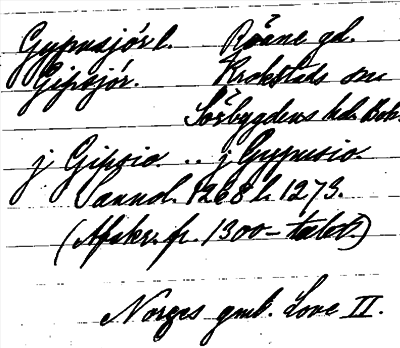 Gypusjór l. Röåne gd.
Gipsjór. Krokstads sn
Sörbygdens hd. Boh.
j Gipsio. .. j Gypusio.
annol. 1268 l. 1273.
(Afskr. fr. 1300-talet.)
Norges gml. Love II.